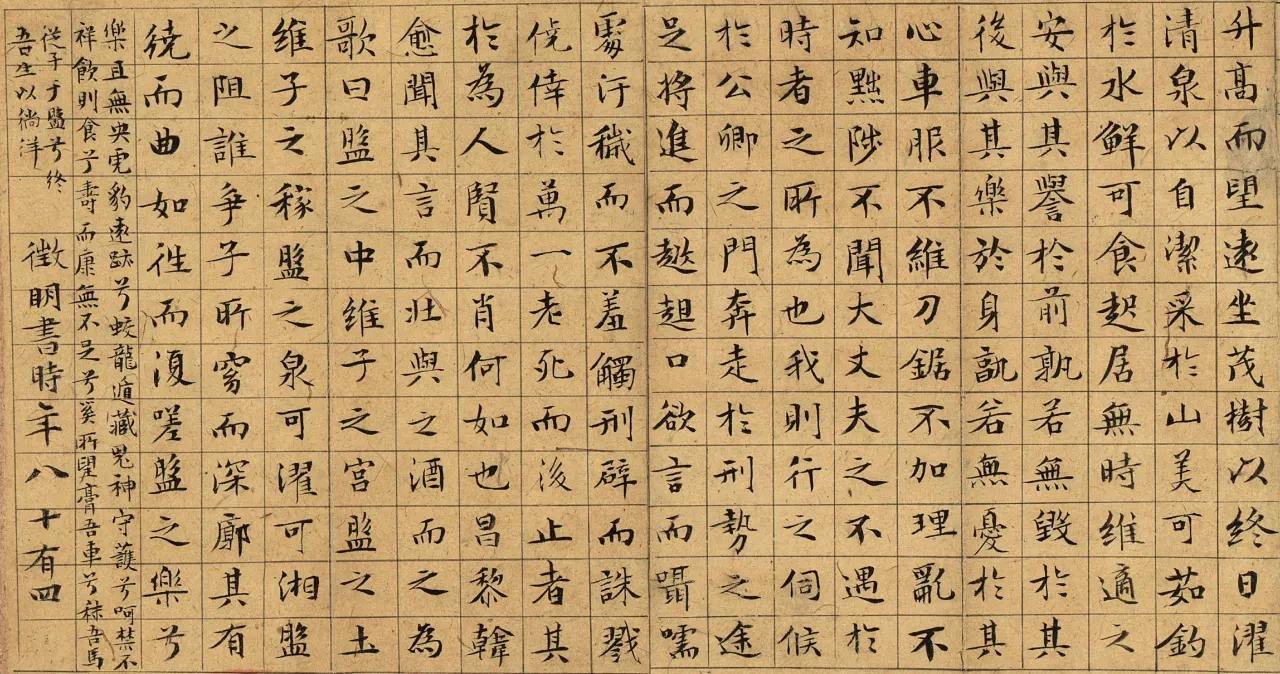 升髙而望遠坐茂樹以終日濯
清泉以自潔采於山美可茹釣
於水鮮可食起居無時維適之
安與其譽於前孰若無毀於其
後與其樂於身孰若無憂於其
心車服不維刀鋸不加理亂不
知黜陟不聞大丈夫之不遇於
時者之所為也我則行之伺候
於公卿之門奔走於刑勢之途
足將進而趑趄口欲言而囁嚅
處汙穢而不羞觸刑辟而誅戮
僥倖於萬一老死而後止者其
於為人賢不肖何如也昌黎韓
愈聞其言而壯與之酒而之為
歌曰盤之中維子之宮盤之土
維子之稼盤之泉可濯可湘盤
之阻誰爭子所窈而深廓其有
繞而曲如往而復嗟盤之樂兮
樂且無央虎豹遠跡兮蛟龍遁藏鬼神守護兮呵禁不
祥飲則食兮壽而康無不足兮奚所望膏吾車兮秣吾馬
從子于盤兮終
吾生以徜徉
徵明書時年八十有四